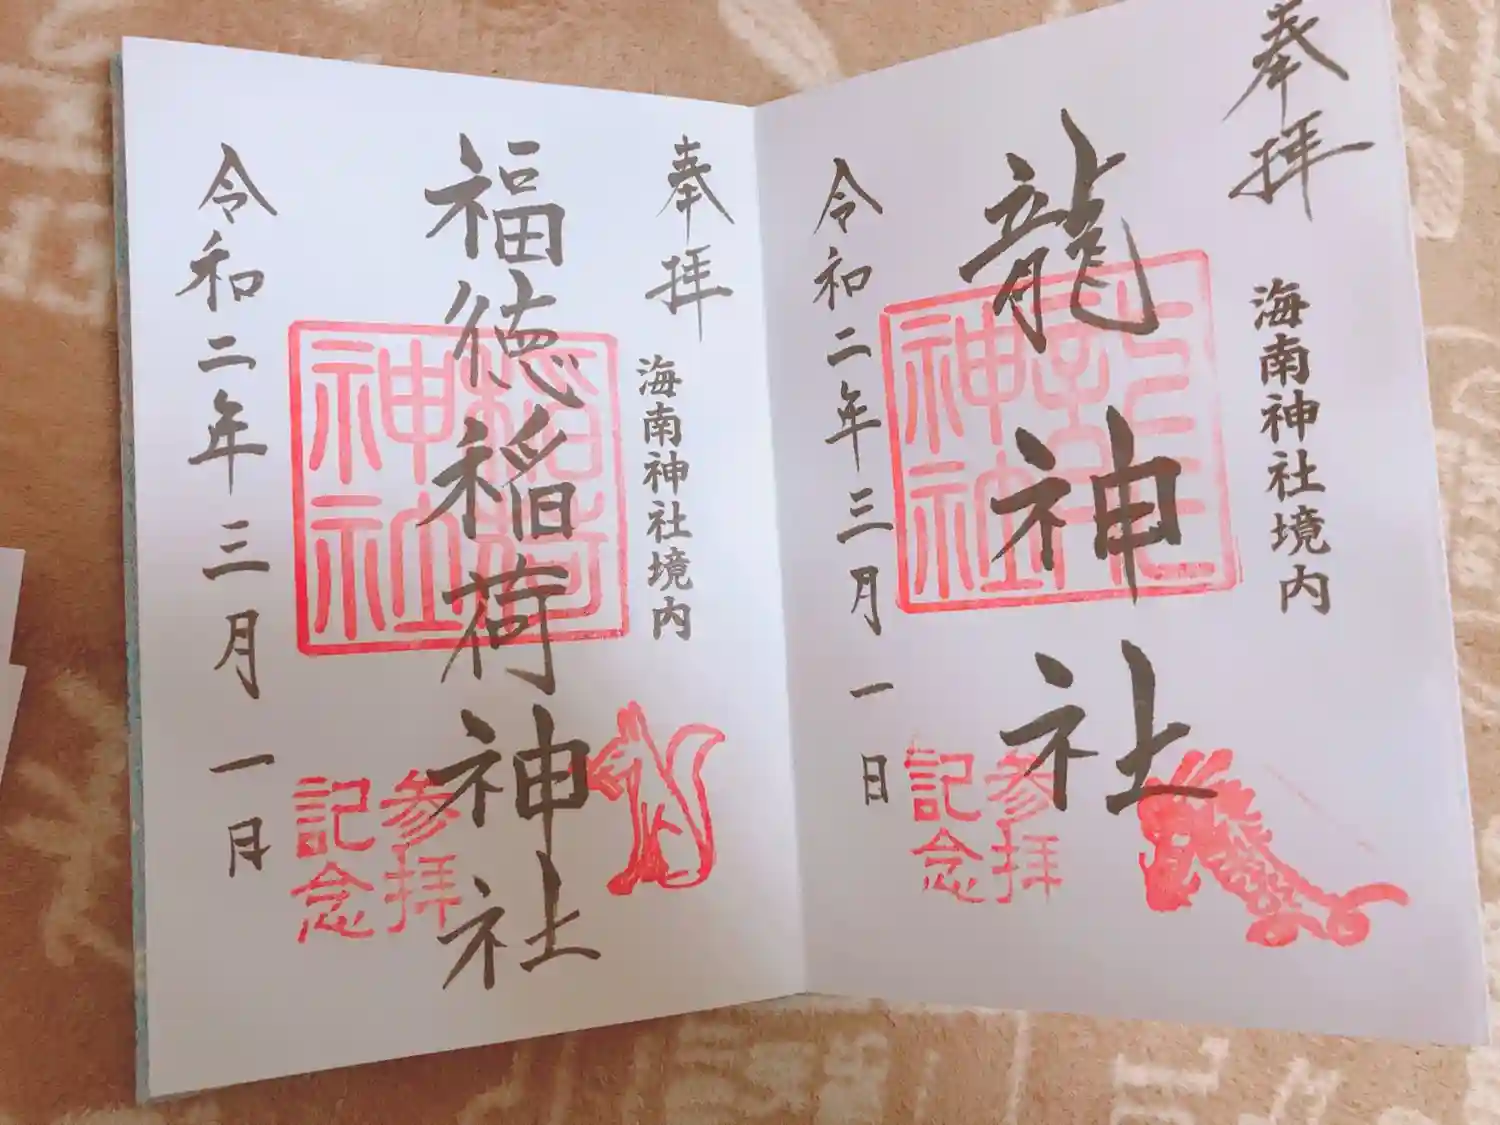 奉拝
海南神社境内
龍神社
令和二年三月一日
参拝
記念
奉拝
海南神社境内
福徳稲荷神社
稲荷
神社
令和二年三月一日
参拝
記念